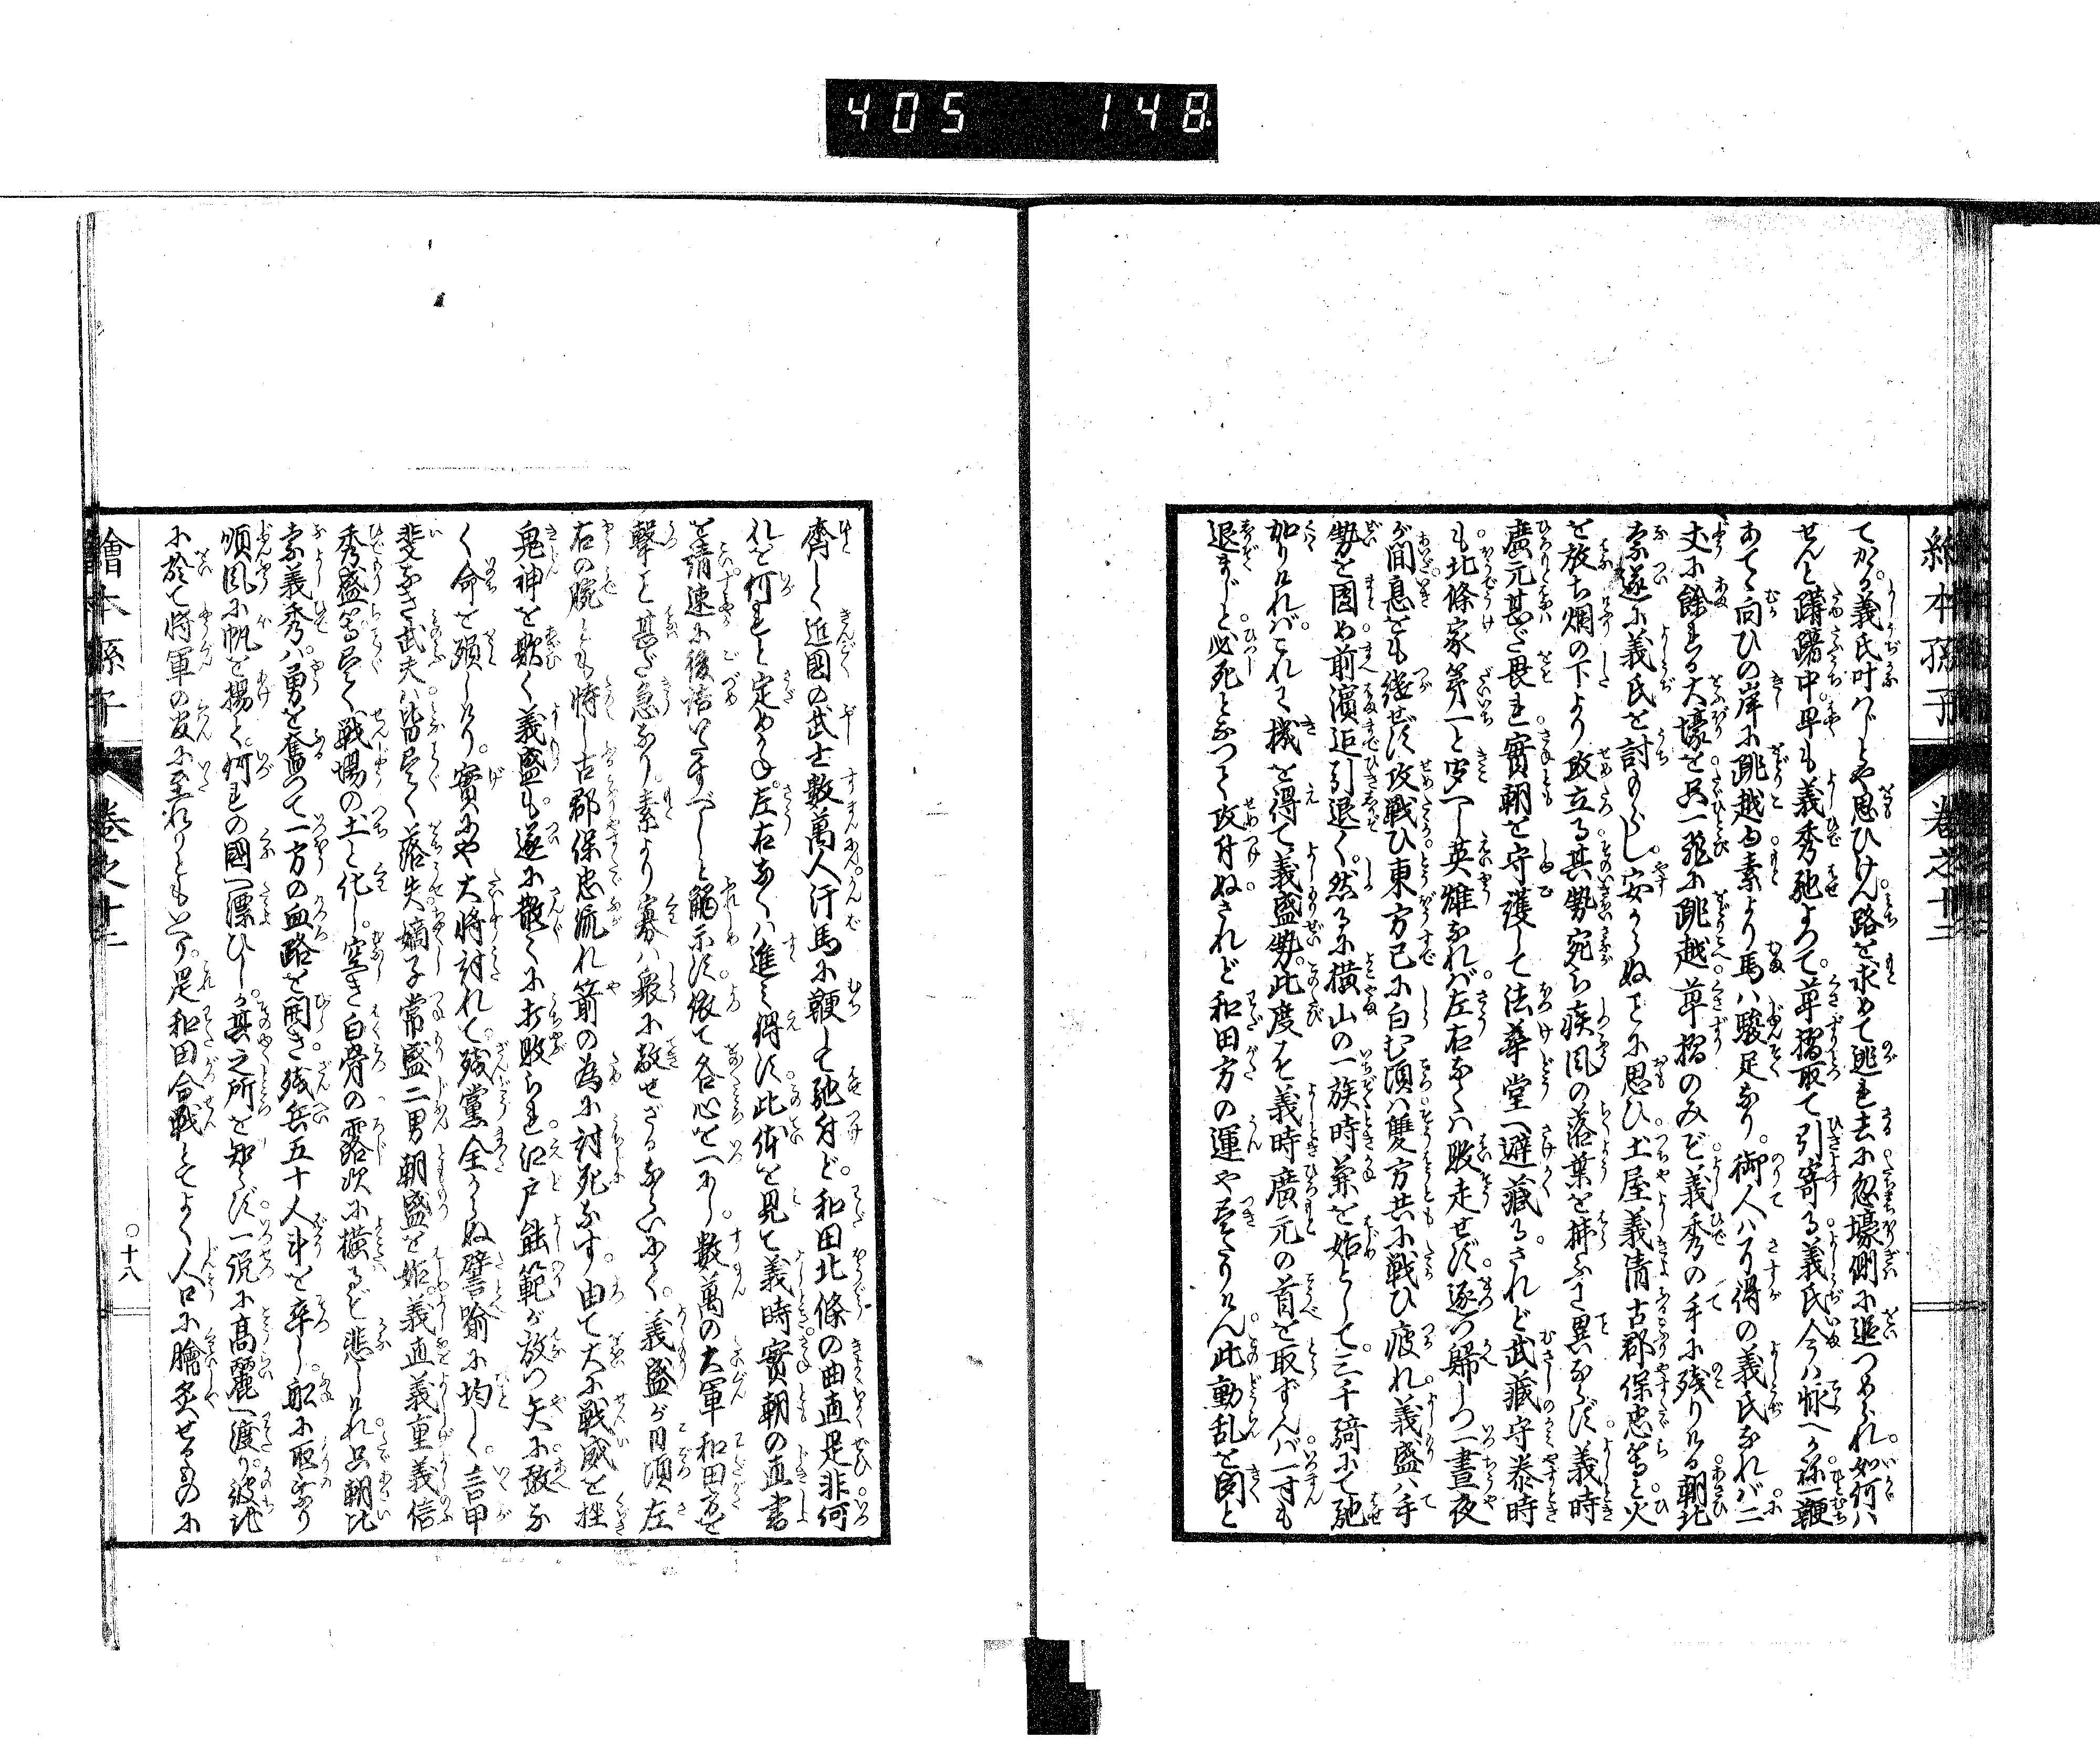 405 148
繪本孫子 巻之十二
てかゝる義氏叶はじとや思ひけん路を求めて逃れ去に忽壕側に追つめられ如何は
せんと躊躇中早も義秀馳よつて草摺取て引寄る義氏今は怺へかね一鞭
あてゝ向ひの岸に跳越る素より馬は駿足なり御人は乗得の義氏なれば二
丈に餘れる大壕を只一飛に跳越草摺のみぞ義秀の手に残りける朝比
奈遂に義氏を討もらし安からぬことに思ひ土屋義清古郡保忠等と火
を放ち烟の下より攻立る其勢宛ら疾風の落葉を掃ふに異ならず義時
廣元甚だ畏れ實朝を守護して法華堂へ避蔵るされど武蔵守泰時
も北條家第一と空へし英雄なれば左右なくは敗走せず逐つ歸しつ一晝夜
が間息をも継せず攻戦ひ東方已に白む頃は雙方共に戦ひ疲れ義盛は手
勢を固め前濱迄引退く然るに横山の一族時兼を始として三千騎にて馳
加りければこれに機を得て義盛勢此度こそ義時廣元の首を取ずんば一寸も
退まじと必死となつて攻付ぬされど和田方の運や尽たりけん此動乱を聞と
齊しく近國の武士数萬人汗馬に鞭して馳付ど和田北條の曲直是非何
れを何れと定めかね左右なくは進み得ず此体を見て義時實朝の直書
を請速に後詰いたすべしと觸示す依て各心を一にし数萬の大軍和田方を
撃こと甚だ急なり素より寡は衆に敵せざるならいにて義盛が日頃左
右の腕とも恃し古郡保忠流れ箭の為に討死なす由て大に戦威を挫
鬼神を欺く義盛も遂に散々に打敗られ江戸能範が放つ矢に敢な
く命を殞しけり實にや大將討れて残黨全からぬ譬喩に均しく言甲
斐なき武夫は皆尽く落失嫡子常盛二男朝盛を始義直義重義信
秀盛等尽く戦場の土と化し空き白骨の露次に横るぞ悲しけれ只朝比
奈義秀は勇を奮つて一方の血路を開き残兵五十人計を卒し舩に取乗り
順風に帆を揚て何れの國へ漂ひしか其之所を知らず一説に髙麗へ渡り彼地
に於て将軍の官に至れりともいへり是和田合戦とてよく人口に膾炙せるものに
繪本孫子 巻之十二 〇十八